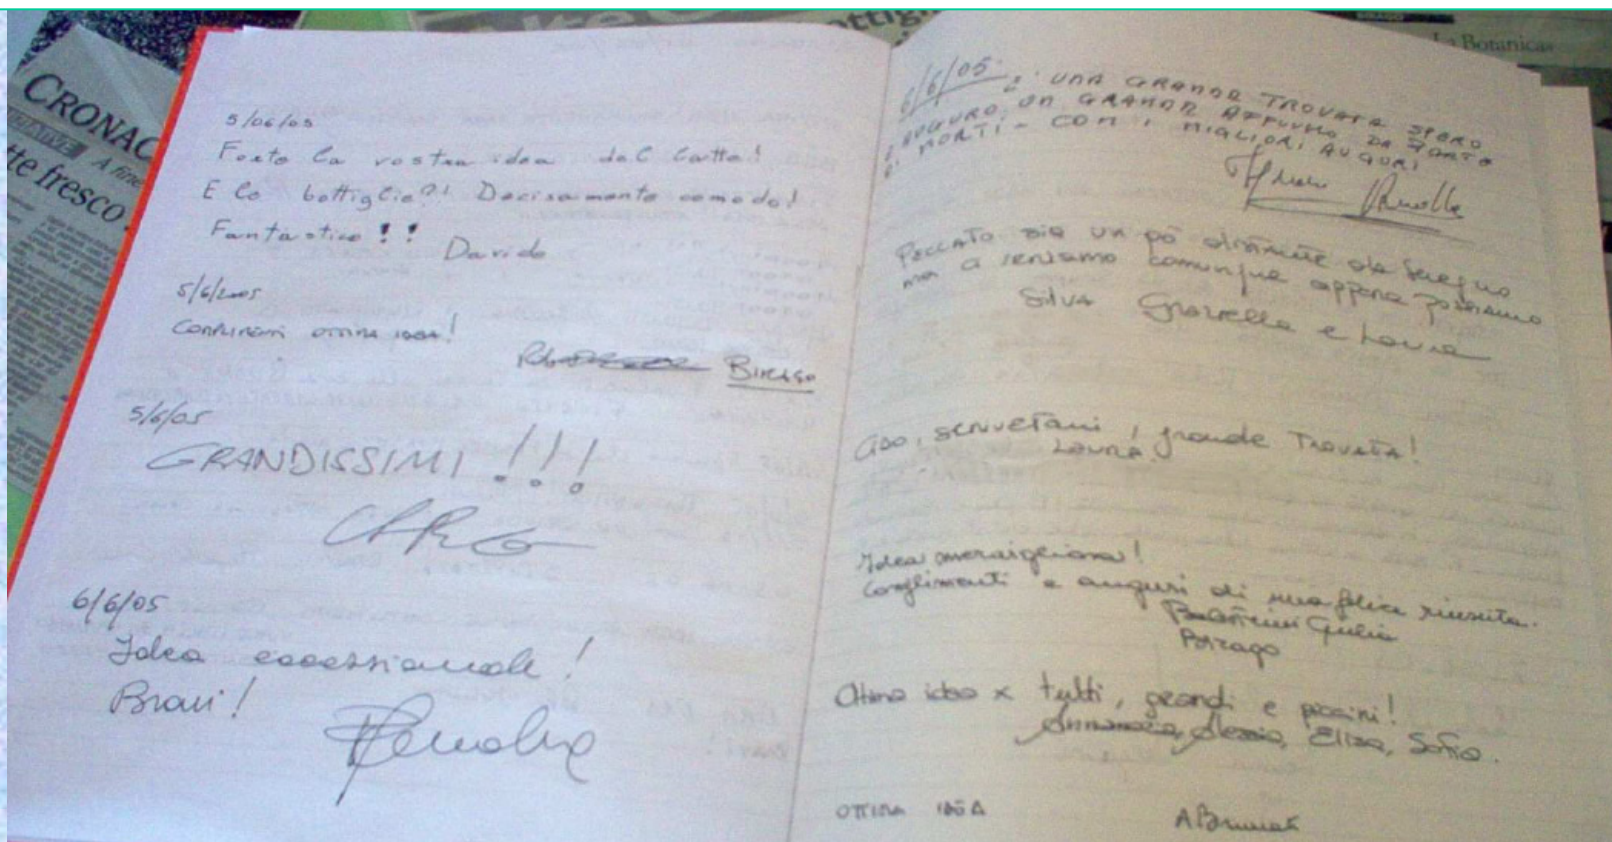 CRONAC
A fine
te fresco
La Botanica
5/06/05
Forte la vostra idea del latte!
E le bottiglie?! Decisamente comodo!
Fantastico!!
Davide
5/6/2005
COMPLIMENTI OTTIMA IDEA!
BIRAGO
5/6/05
GRANDISSIMI !!!
6/6/05
Idea eccezionale!
Bravi!
6/6/05
È UNA GRANDE TROVATA SPERO
E AUGURO UN GRANDE AFFLUSSO DA PARTE
DI MOLTI - COM I MIGLIORI AUGURI
PECCATO sia un pò distante da Seregno
ma ci serviamo comunque appena possiamo
Silva Graziella e Laura
Ciao, , grande TROVATA!
LAURA.
Idea meravigliosa!
Complimenti e auguri di una felice riuscita.
Giulia
Birago
Ottima idea x tutti, grandi e piccini!
Annamaria, Alessia, Elisa, Sofia.
OTTIMA IDEA